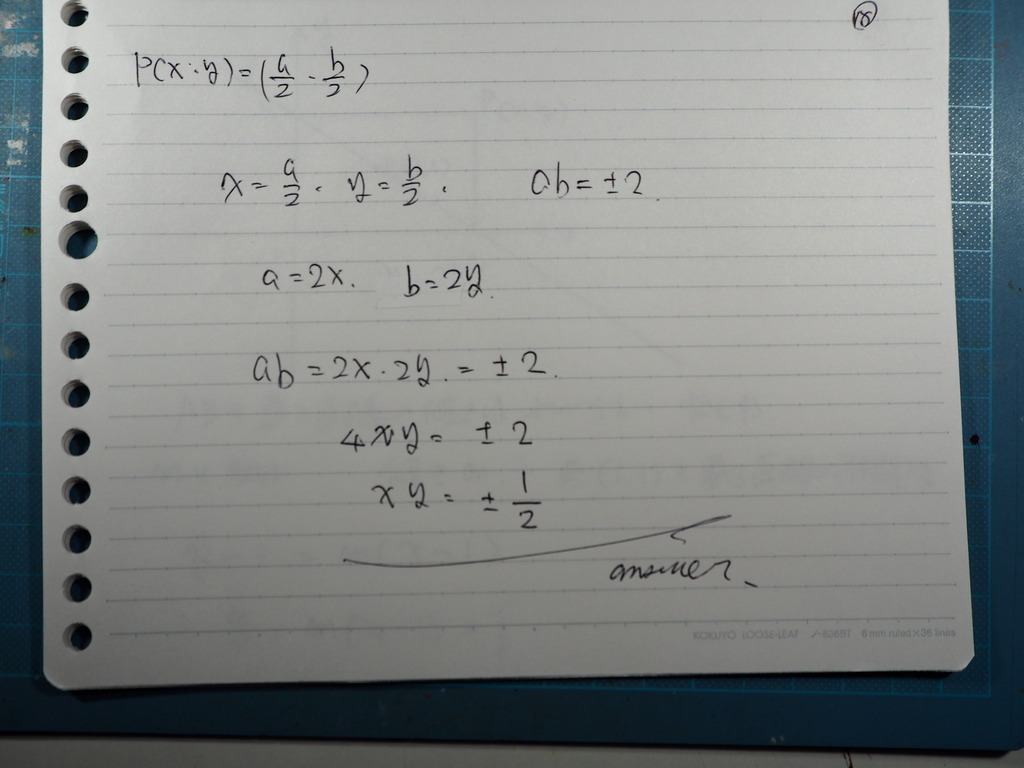 P(x・y)=(a/2・b/2)
x = a/2. y = b/2. ab = ±2.
a = 2x. b = 2y.
ab = 2x・2y. = ±2.
4xy = ±2
xy = ±1/2
answer.
KOKUYO LOOSE-LEAF ノ-836BT 6 mm ruled×36 lines